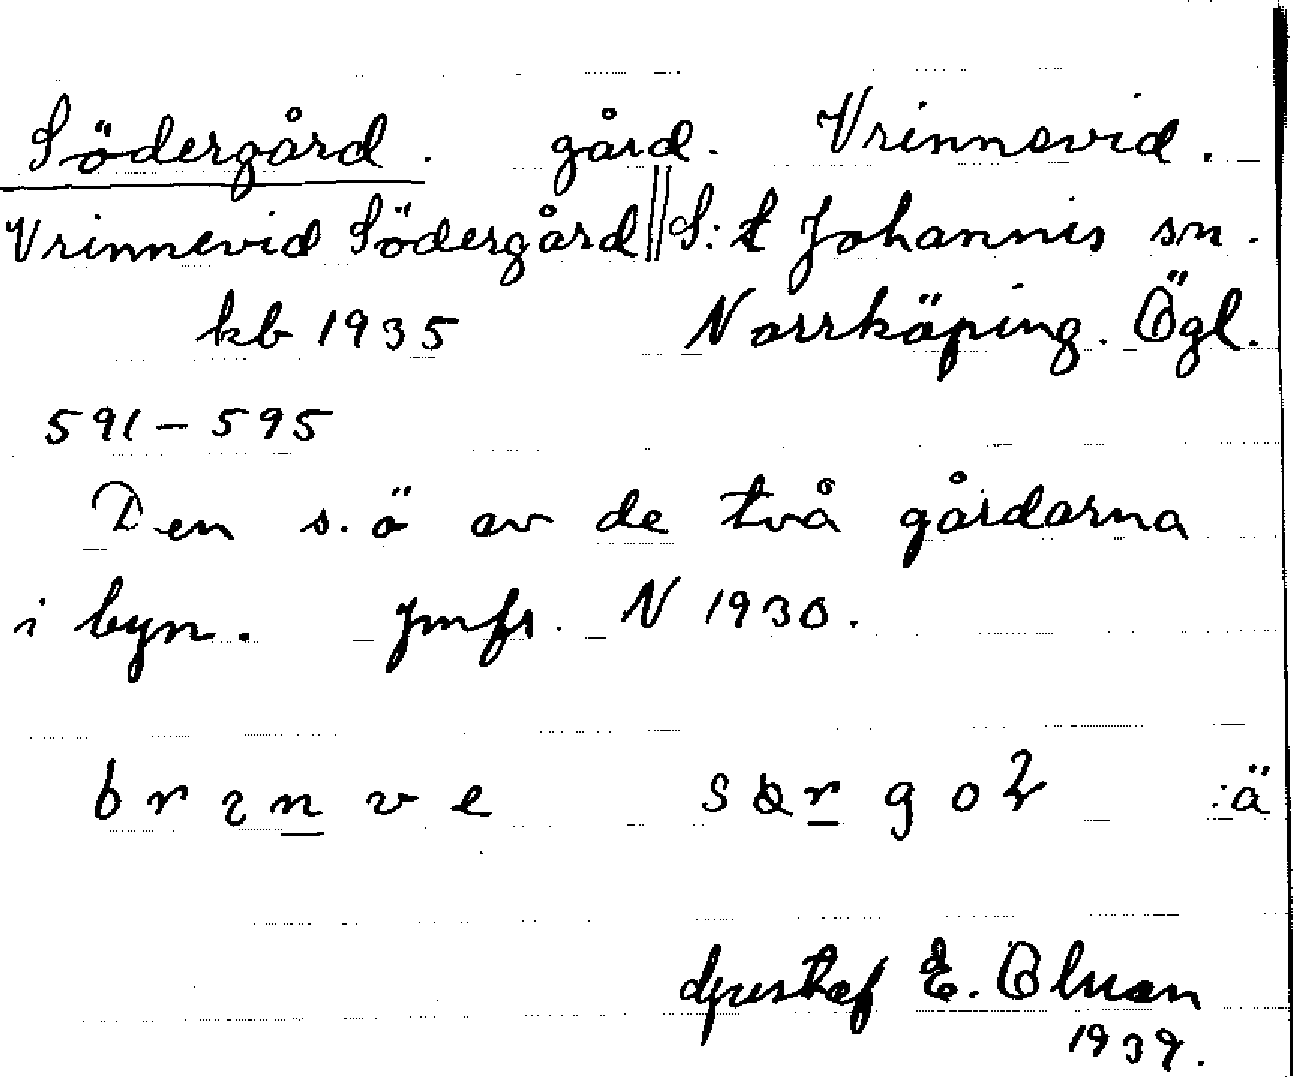 Södergård. gård. Vrinnevid.
Vrinnevid Södergård || S:t Johannis sn.
kb 1935 Norrköping. Ögl.
591-595
Den s. ö av de två gårdarna
i byn. Jmfr. N 1930.
ä
Gustaf E.
1939.